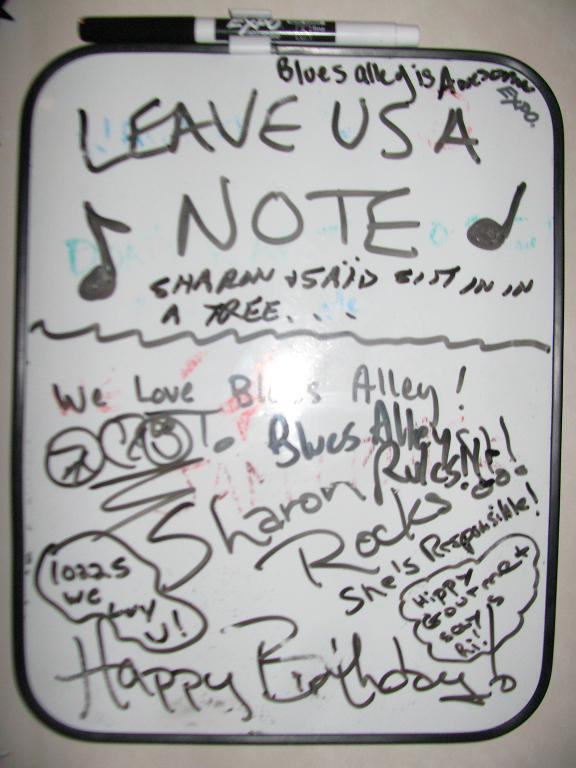 EXPO
Blues alley is Awesome
EXPO.
LEAVE US A
NOTE
SHARON & SAÏD SIT IN IN
A TREE...
We Love Blues Alley!
Blues Alley
Rules!
Sharon
Rocks
She's Responsible!
1022.5
we
luv
U!
Hippy
Gourmet
says
Hi!
Happy Birthday!